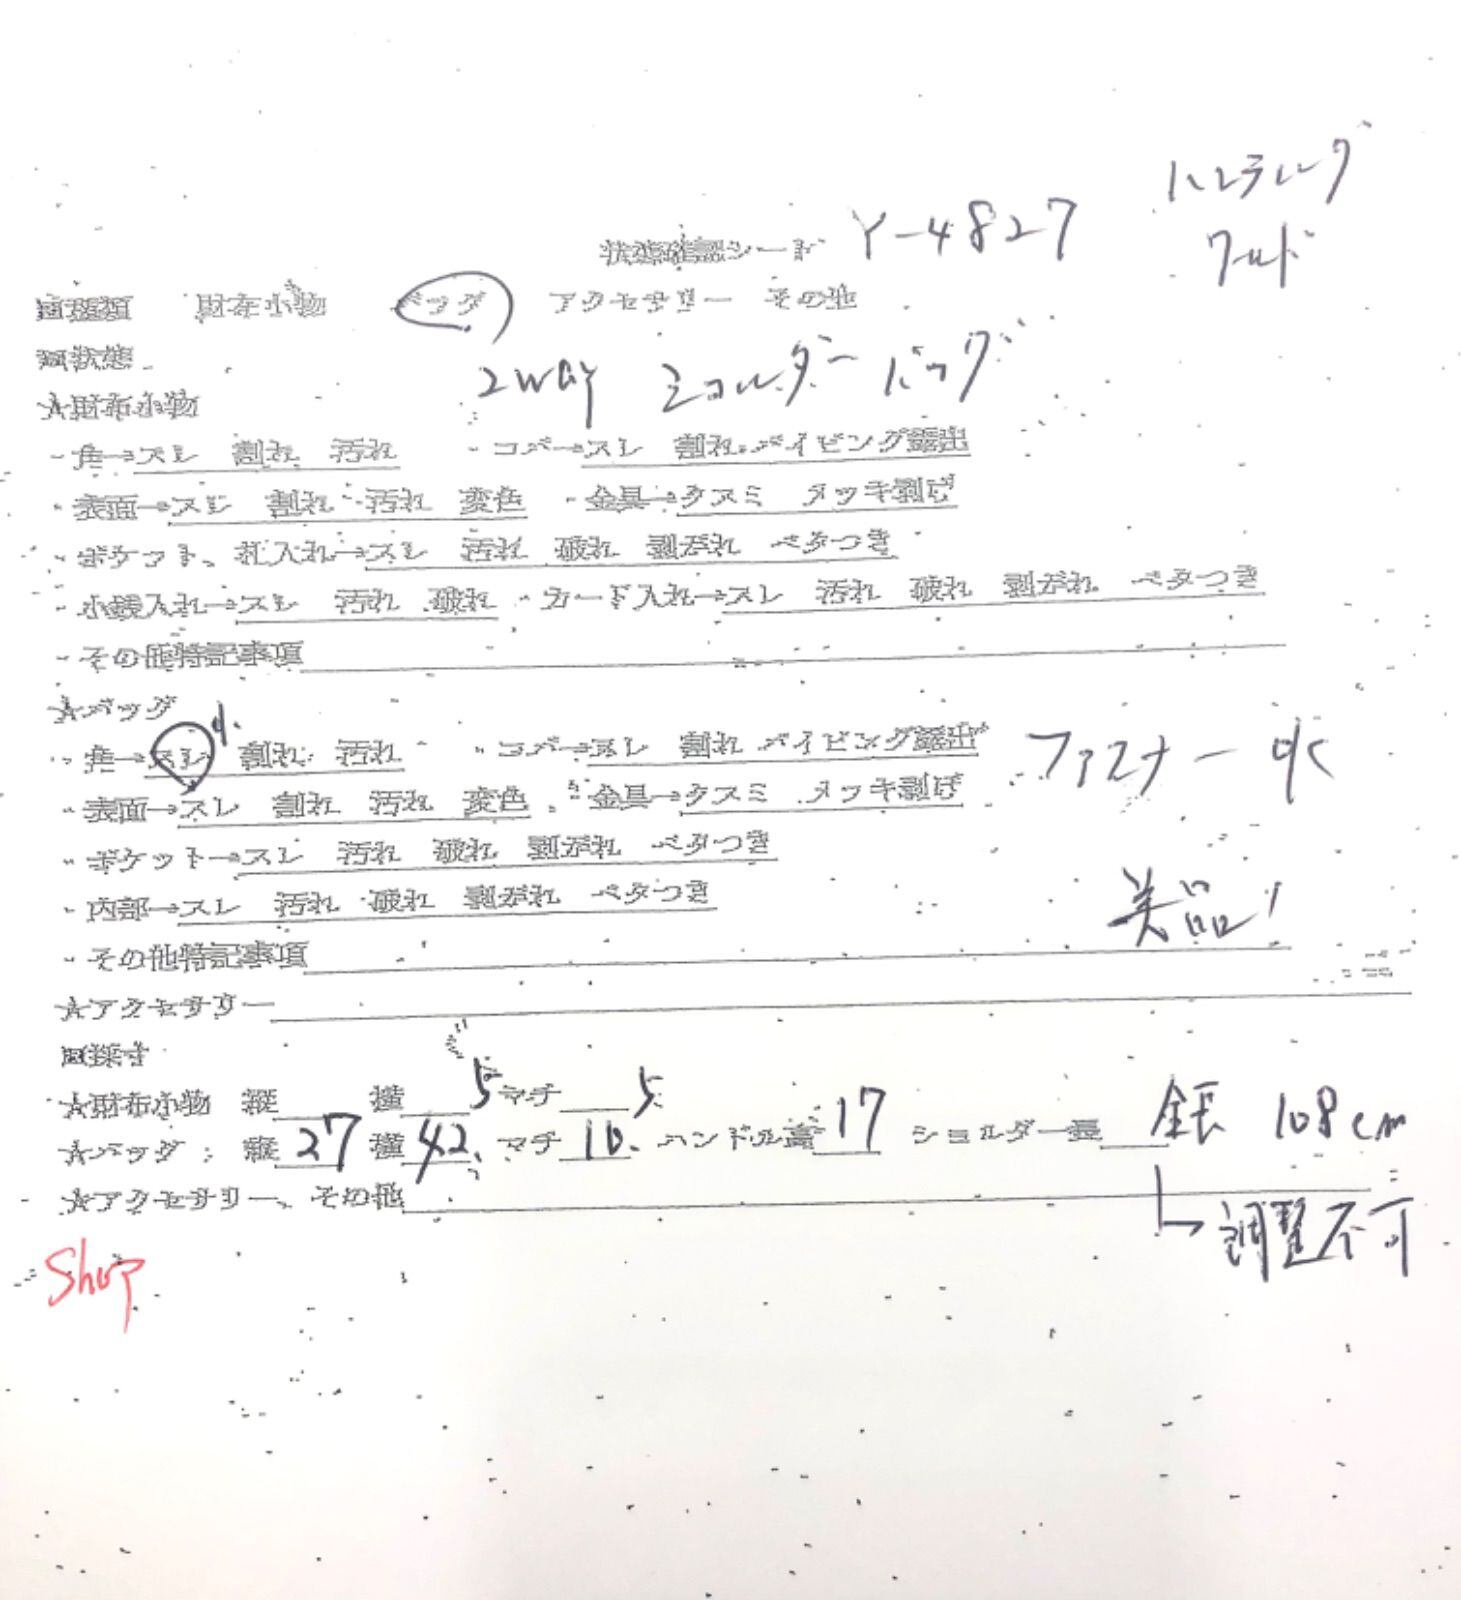 ハンティング
ワールド
状態確認シート Y-4827
□種類 財布小物 バッグ アクセサリー その他
□状態 2way ショルダーバッグ
★財布小物
・角→スレ 割れ 汚れ ・コバ→スレ 割れ パイピング露出
・表面→スレ 割れ 汚れ 変色 ・金具→クスミ メッキ剥げ
・ポケット、札入れ→スレ 汚れ 破れ 剥がれ ベタつき
・小銭入れ→スレ 汚れ 破れ ・カード入れ→スレ 汚れ 破れ 剥がれ ベタつき
・その他特記事項
★バッグ
・角→スレ 小 割れ 汚れ ・コバ→スレ 割れ パイピング露出 ファスナー OK
・表面→スレ 割れ 汚れ 変色 ・金具→クスミ メッキ剥げ
・ポケット→スレ 汚れ 破れ 剥がれ ベタつき
・内部→スレ 汚れ 破れ 剥がれ ベタつき 美品!
・その他特記事項
★アクセサリー
□採寸
★財布小物 縦 横 マチ
★バッグ: 縦 27 横 42.5 マチ 10.5 ハンドル高 17 ショルダー長 全長 108cm
★アクセサリー、その他 調整不可
Shop